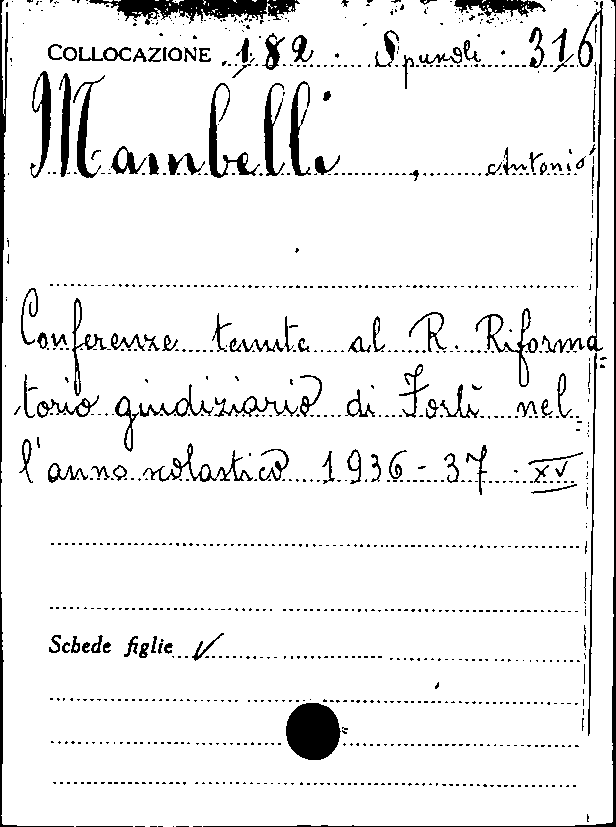 COLLOCAZIONE 182 · Spunoli · 316
Mambelli, Antonio
Conferenze tenute al R. Riforma=
torio giudiziario di Forlì nel=
l'anno scolastico 1936-37 · XV
Schede figlie V